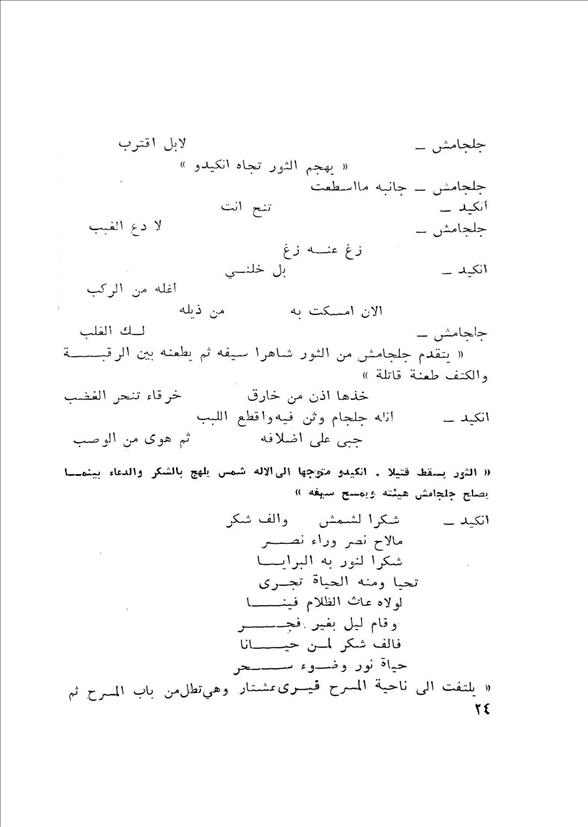 جلجامش ــ لابل اقترب
« يهجم الثور تجاه انكيدو »
جلجامش ــ جانبه مااسطعت
انكيد ــ تنح انت
جلجامش ــ لا دع الغبب
زغ عنــه زغ
انكيد ــ بل خلنــي
اغله من الركب
الان امــكت به من ذيله
جلجامش ــ لــك الغلب
« يتقدم جلجامش من الثور شاهرا سيفه ثم يطعنه بين الرقبــــة
والكتف طعنة قاتلة »
خذها اذن من خارق خرقاء تنحر الغضب
انكيد ــ انله جلجام وثن فيه واقطع اللبب
جبى على اضلافه ثم هوى من الوصب
« الثور يسقط قتيلا . انكيدو متوجها الى الاله شمس يلهج بالشكر والدعاء بينمــا
يصلح جلجامش هيئته ويمسح سيفه »
انكيد ــ شكرا لشمش والف شكر
مالاح نصر وراء نصــر
شكرا لنور به البرايــا
تحيا ومنه الحياة تجــرى
لولاه عاث الظلام فينــــا
وقام ليل بغير فجــــر
فالف شكر لمــن حيــانا
حياة نور وضــوء ســـحر
« يلتفت الى ناحية المسرح فيــرى عشتار وهي تطل من باب المسرح ثم
٢٤